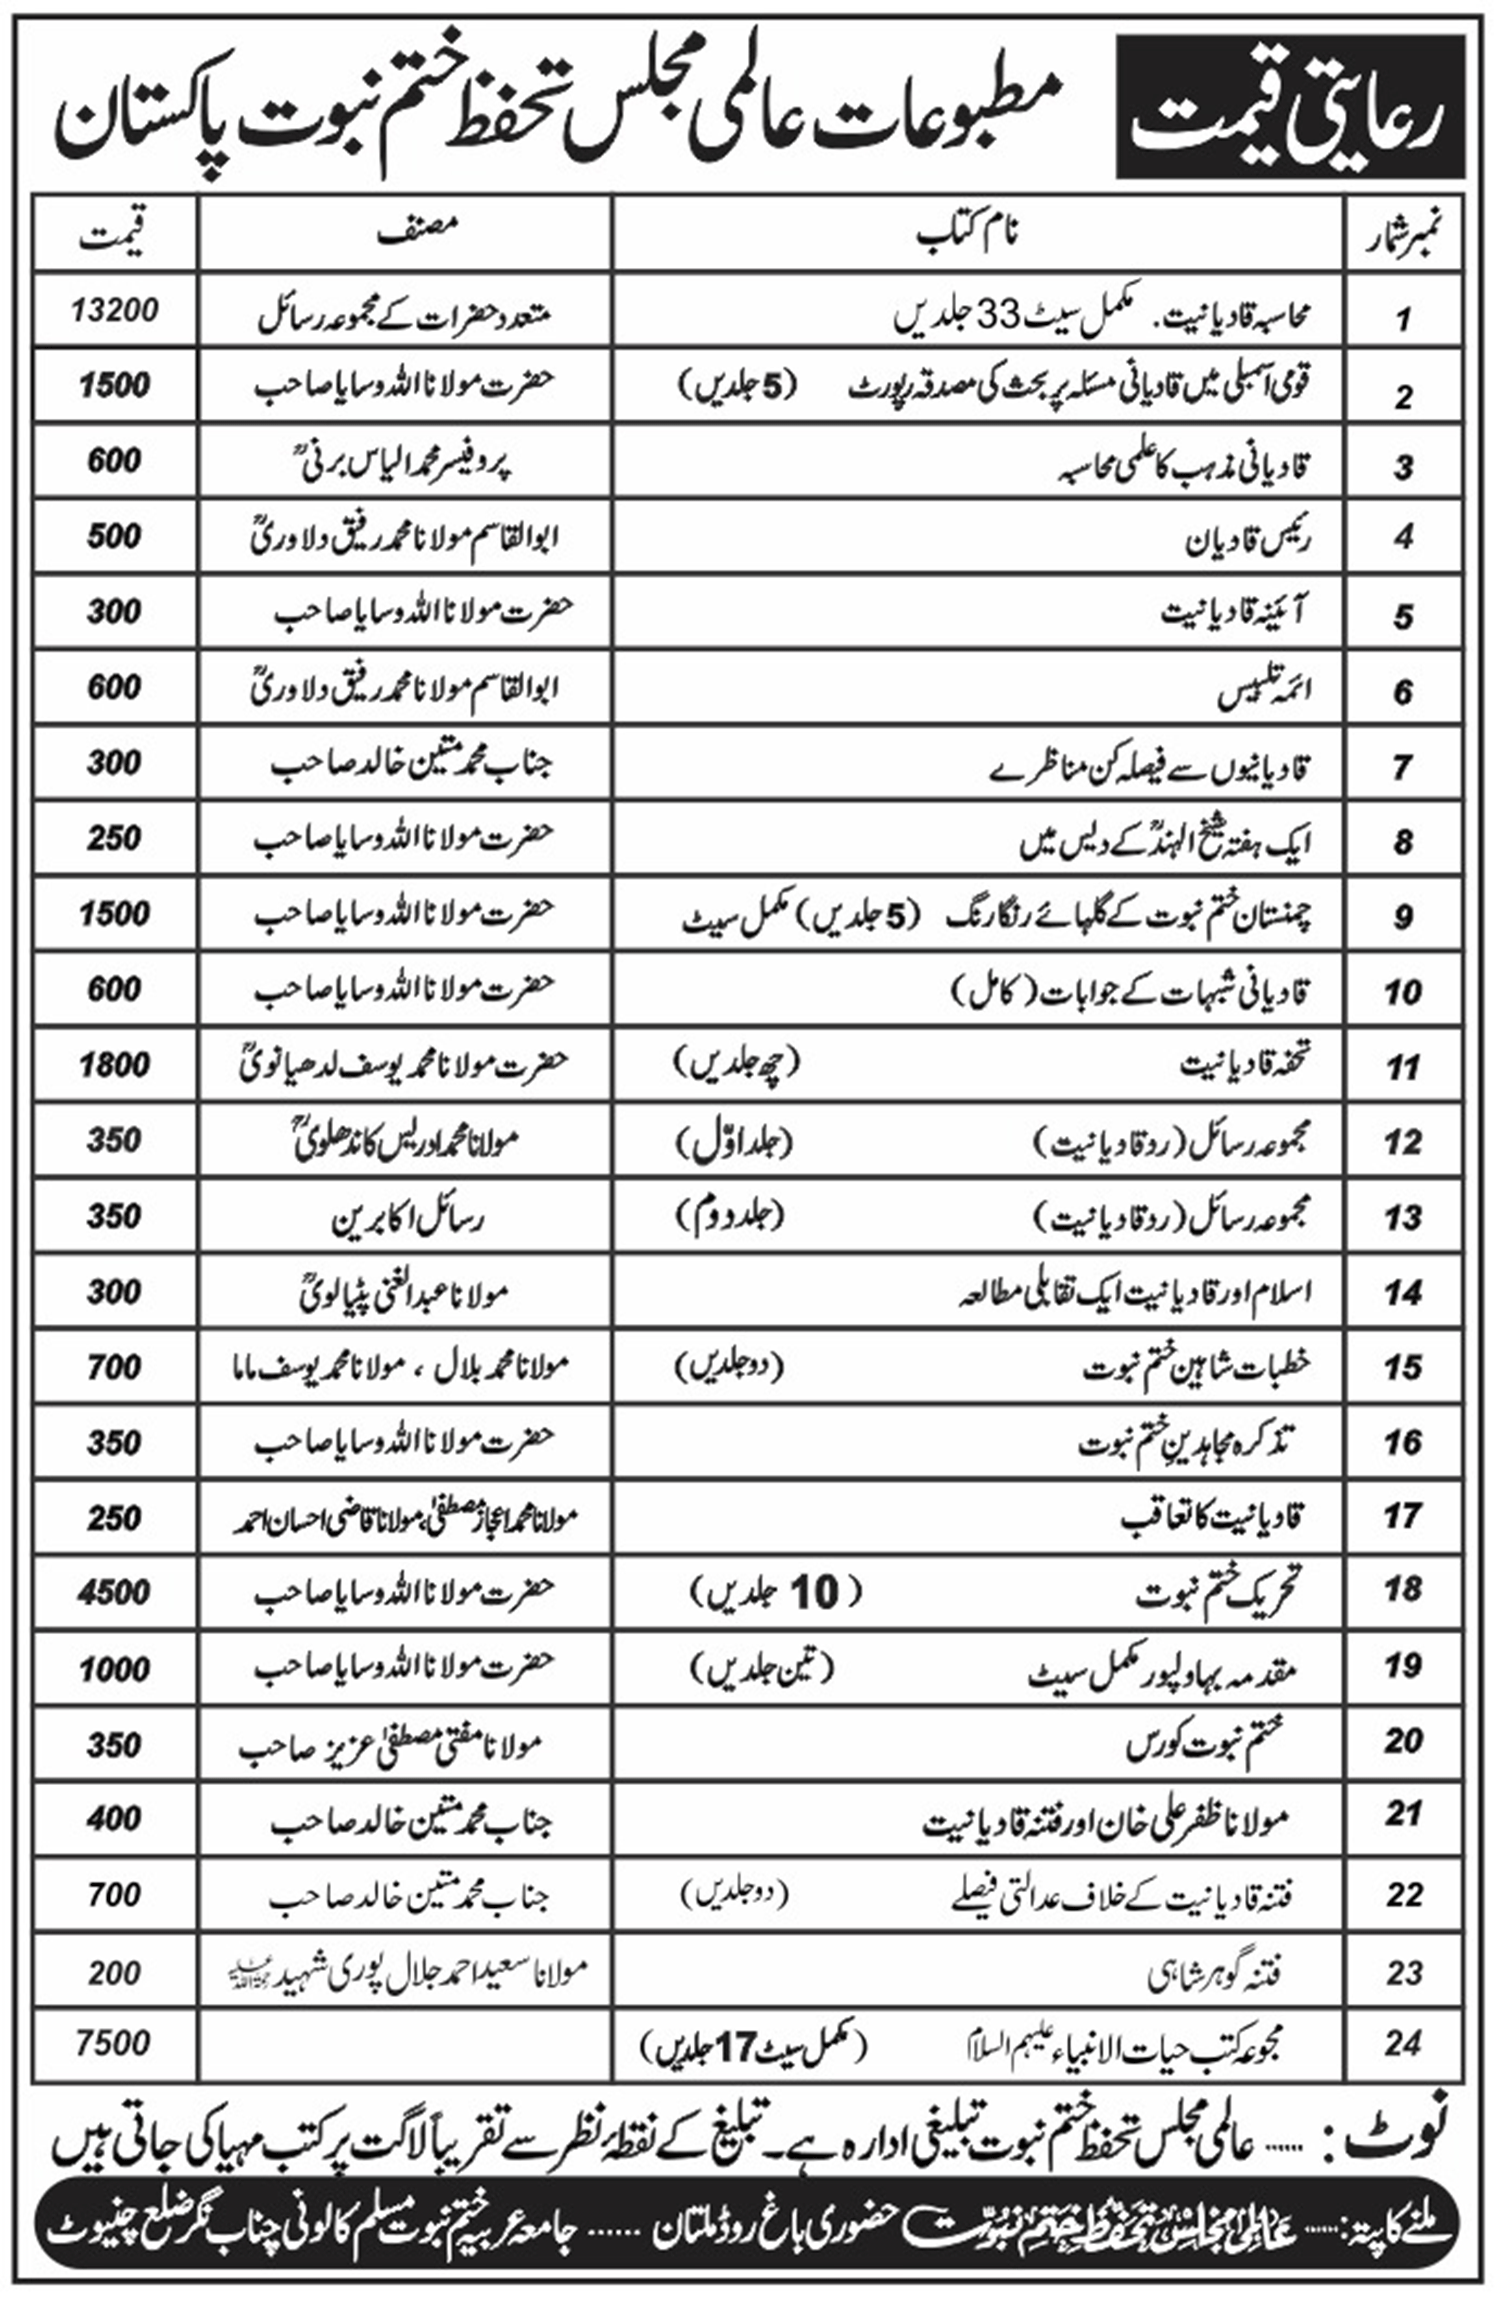 رعایتی قیمت مطبوعات عالمی مجلس تحفظ ختم نبوت پاکستان
نمبر شمار نام کتاب مصنف قیمت
1 محاسبہ قادیانیت. مکمل سیٹ 33 جلدیں متعدد حضرات کے مجموعہ رسائل 13200
2 قومی اسمبلی میں قادیانی مسئلہ پر بحث کی مصدقہ رپورٹ (5 جلدیں) حضرت مولانا اللہ وسایا صاحب 1500
3 قادیانی مذہب کا علمی محاسبہ پروفیسر محمد الیاس برنیؒ 600
4 رئیس قادیان ابوالقاسم مولانا محمد رفیق دلاوریؒ 500
5 آئینہ قادیانیت حضرت مولانا اللہ وسایا صاحب 300
6 ائمہ تلبیس ابوالقاسم مولانا محمد رفیق دلاوریؒ 600
7 قادیانیوں سے فیصلہ کن مناظرے جناب محمد متین خالد صاحب 300
8 ایک ہفتہ شیخ الہندؒ کے دیس میں حضرت مولانا اللہ وسایا صاحب 250
9 چمنستان ختم نبوت کے گلہائے رنگا رنگ (5 جلدیں) مکمل سیٹ حضرت مولانا اللہ وسایا صاحب 1500
10 قادیانی شبہات کے جوابات (کامل) حضرت مولانا اللہ وسایا صاحب 600
11 تحفہ قادیانیت (چھ جلدیں) حضرت مولانا محمد یوسف لدھیانویؒ 1800
12 مجموعہ رسائل (رد قادیانیت) (جلد اوّل) مولانا محمد ادریس کاندھلویؒ 350
13 مجموعہ رسائل (رد قادیانیت) (جلد دوم) رسائل اکابرین 350
14 اسلام اور قادیانیت ایک تقابلی مطالعہ مولانا عبدالغنی پٹیالویؒ 300
15 خطبات شاہین ختم نبوت (دو جلدیں) مولانا محمد بلال ، مولانا محمد یوسف ماما 700
16 تذکرہ مجاہدینِ ختم نبوت حضرت مولانا اللہ وسایا صاحب 350
17 قادیانیت کا تعاقب مولانا محمد اعجاز مصطفیٰ، مولانا قاضی احسان احمد 250
18 تحریک ختم نبوت (10 جلدیں) حضرت مولانا اللہ وسایا صاحب 4500
19 مقدمہ بہاولپور مکمل سیٹ (تین جلدیں) حضرت مولانا اللہ وسایا صاحب 1000
20 ختم نبوت کورس مولانا مفتی مصطفیٰ عزیز صاحب 350
21 مولانا ظفر علی خان اور فتنہ قادیانیت جناب محمد متین خالد صاحب 400
22 فتنہ قادیانیت کے خلاف عدالتی فیصلے (دو جلدیں) جناب محمد متین خالد صاحب 700
23 فتنہ گوہر شاہی مولانا سعید احمد جلال پوری شہید رحمۃ اللہ علیہ 200
24 مجموعہ کتب حیات الانبیاء علیہم السلام (مکمل سیٹ 17 جلدیں) 7500
نوٹ : ...... عالمی مجلس تحفظ ختم نبوت تبلیغی ادارہ ہے۔ تبلیغ کے نقطۂ نظر سے تقریباً لاگت پر کتب مہیا کی جاتی ہیں
ملنے کا پتہ: ...... عالمی مجلس تحفظ ختم نبوت حضوری باغ روڈ ملتان ...... جامعہ عربیہ ختم نبوت مسلم کالونی چناب نگر ضلع چنیوٹ